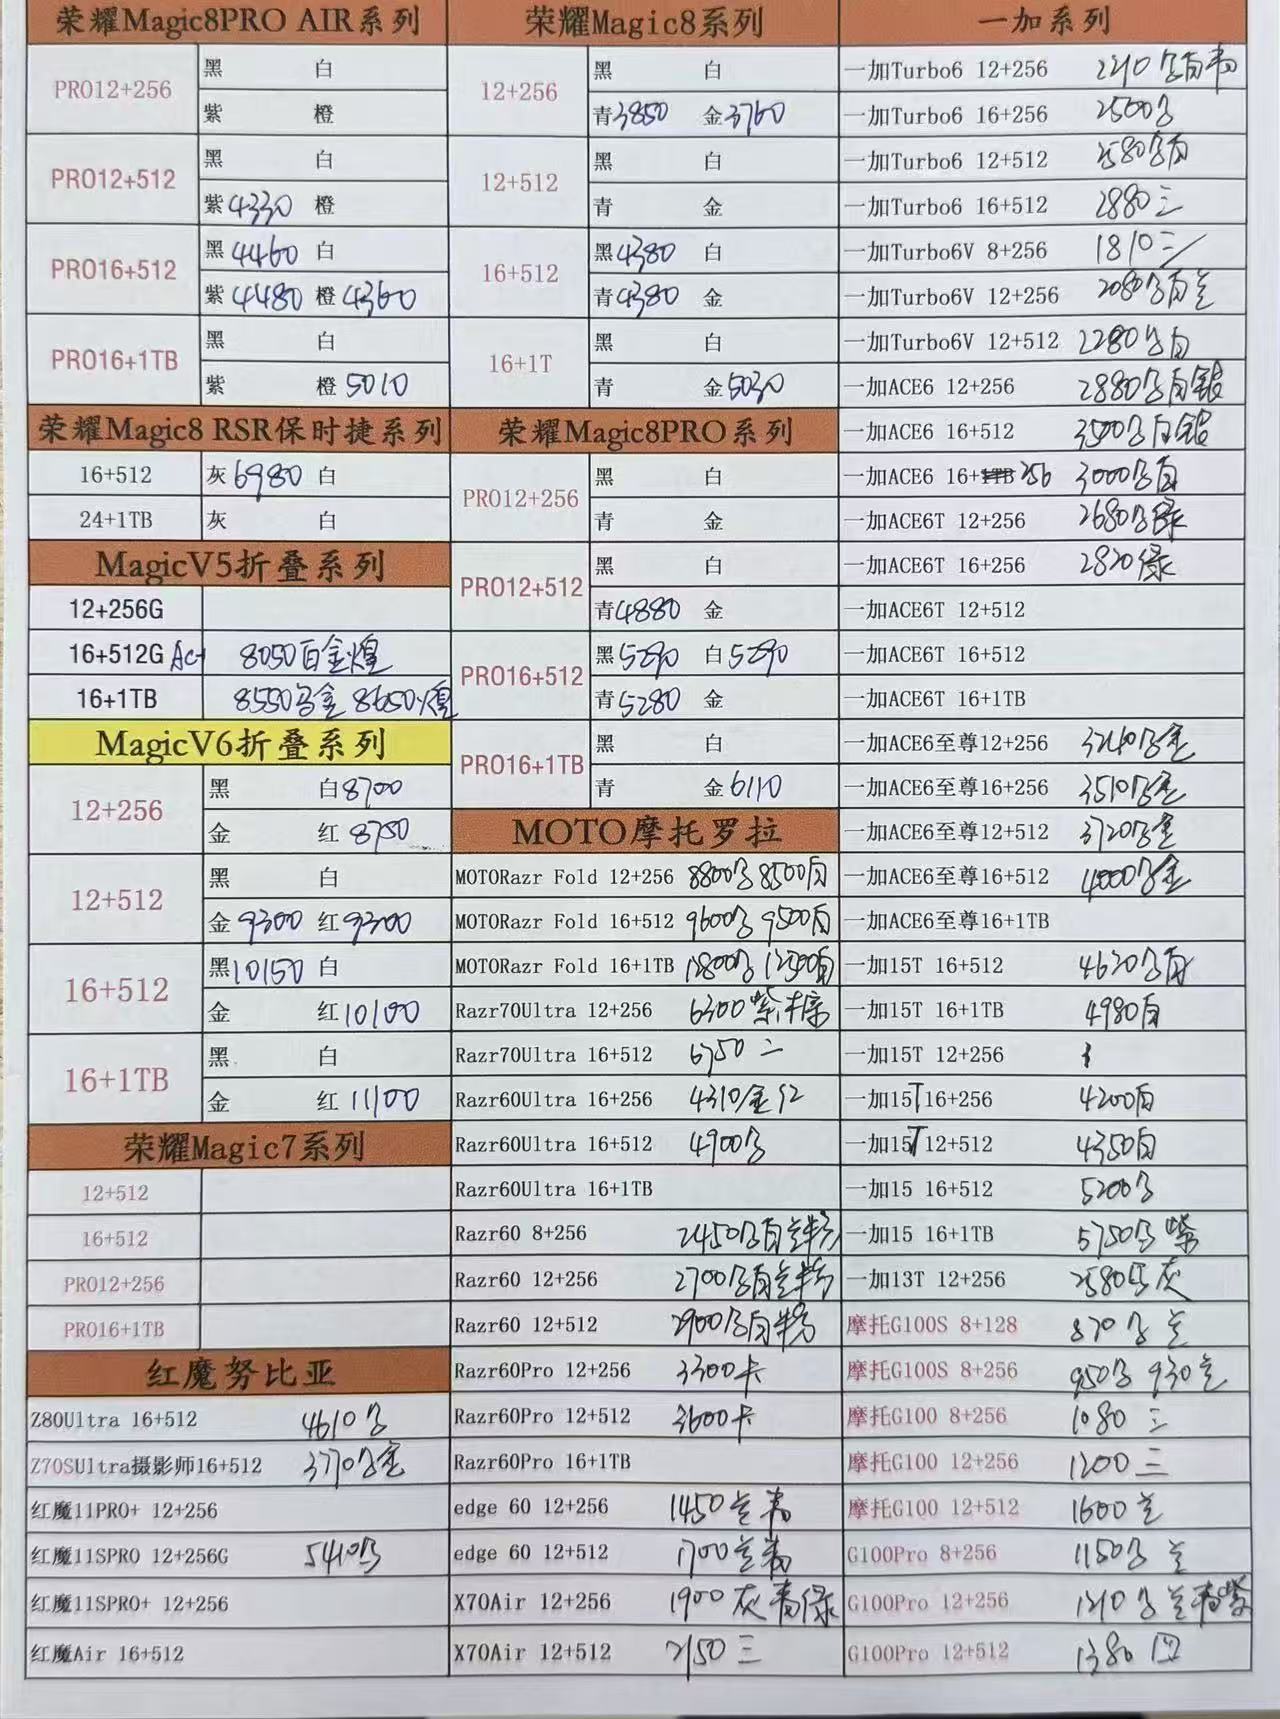 荣耀Magic8PRO AIR系列
PRO12+256
黑 白
紫 橙
PRO12+512
黑 白
紫4330 橙
PRO16+512
黑4460 白
紫4480 橙4360
PRO16+1TB
黑 白
紫 橙5010
荣耀Magic8 RSR保时捷系列
16+512 灰6980 白
24+1TB 灰 白
MagicV5折叠系列
12+256G
16+512G 8050白金煌
16+1TB 8550乌金 8650煌
MagicV6折叠系列
12+256
黑 白8700
金 红8750
12+512
黑 白
金9300 红9300
16+512
黑10150 白
金 红10100
16+1TB
黑 白
金 红11100
荣耀Magic7系列
12+512
16+512
PRO12+256
PRO16+1TB
红魔努比亚
Z80Ultra 16+512 4610
Z70SUltra摄影师16+512 3770 金
红魔11PRO+ 12+256
红魔11SPRO 12+256G 5410
红魔11SPRO+ 12+256
红魔Air 16+512
荣耀Magic8系列
12+256
黑 白
青3850 金3760
12+512
黑 白
青 金
16+512
黑4380 白
青4380 金
16+1T
黑 白
青 金5030
荣耀Magic8PRO系列
PRO12+256
黑 白
青 金
PRO12+512
黑 白
青4880 金
PRO16+512
黑5290 白5290
青5280 金
PRO16+1TB
黑 白
青 金6110
MOTO摩托罗拉
MOTORazr Fold 12+256 8800 8500白
MOTORazr Fold 16+512 9600 9500白
MOTORazr Fold 16+1TB 12800 12500白
Razr70Ultra 12+256 6300紫棕
Razr70Ultra 16+512 6750二
Razr60Ultra 16+256 4310金红
Razr60Ultra 16+512 4900
Razr60Ultra 16+1TB
Razr60 8+256 2450 白兰粉
Razr60 12+256 2700 白兰粉
Razr60 12+512 2900 白粉
Razr60Pro 12+256 3300卡
Razr60Pro 12+512 3600卡
Razr60Pro 16+1TB
edge 60 12+256 1450兰青
edge 60 12+512 1700兰青
X70Air 12+256 1900灰青绿
X70Air 12+512 2150三
一加系列
一加Turbo6 12+256 白青
一加Turbo6 16+256 2500
一加Turbo6 12+512 2580 白
一加Turbo6 16+512 2880三
一加Turbo6V 8+256 1810三
一加Turbo6V 12+256 2080 白兰
一加Turbo6V 12+512 2280 白
一加ACE6 12+256 2880 白银
一加ACE6 16+512 白银
一加ACE6 16+256 3000 白
一加ACE6T 12+256 2680 绿
一加ACE6T 16+256 2820绿
一加ACE6T 12+512
一加ACE6T 16+512
一加ACE6T 16+1TB
一加ACE6至尊12+256 金
一加ACE6至尊16+256 3510 金
一加ACE6至尊12+512 3720 金
一加ACE6至尊16+512 4000 金
一加ACE6至尊16+1TB
一加15T 16+512 4620 白
一加15T 16+1TB 4980白
一加15T 12+256
一加15T 16+256 4200白
一加15T 12+512 4350白
一加15 16+512 5200
一加15 16+1TB 5750 紫
一加13T 12+256 2580 灰
摩托G100S 8+128 870 兰
摩托G100S 8+256 950 930兰
摩托G100 8+256 1080 三
摩托G100 12+256 1200 三
摩托G100 12+512 1600兰
G100Pro 8+256 1150 兰
G100Pro 12+256 1210 兰青紫
G100Pro 12+512 1380 四